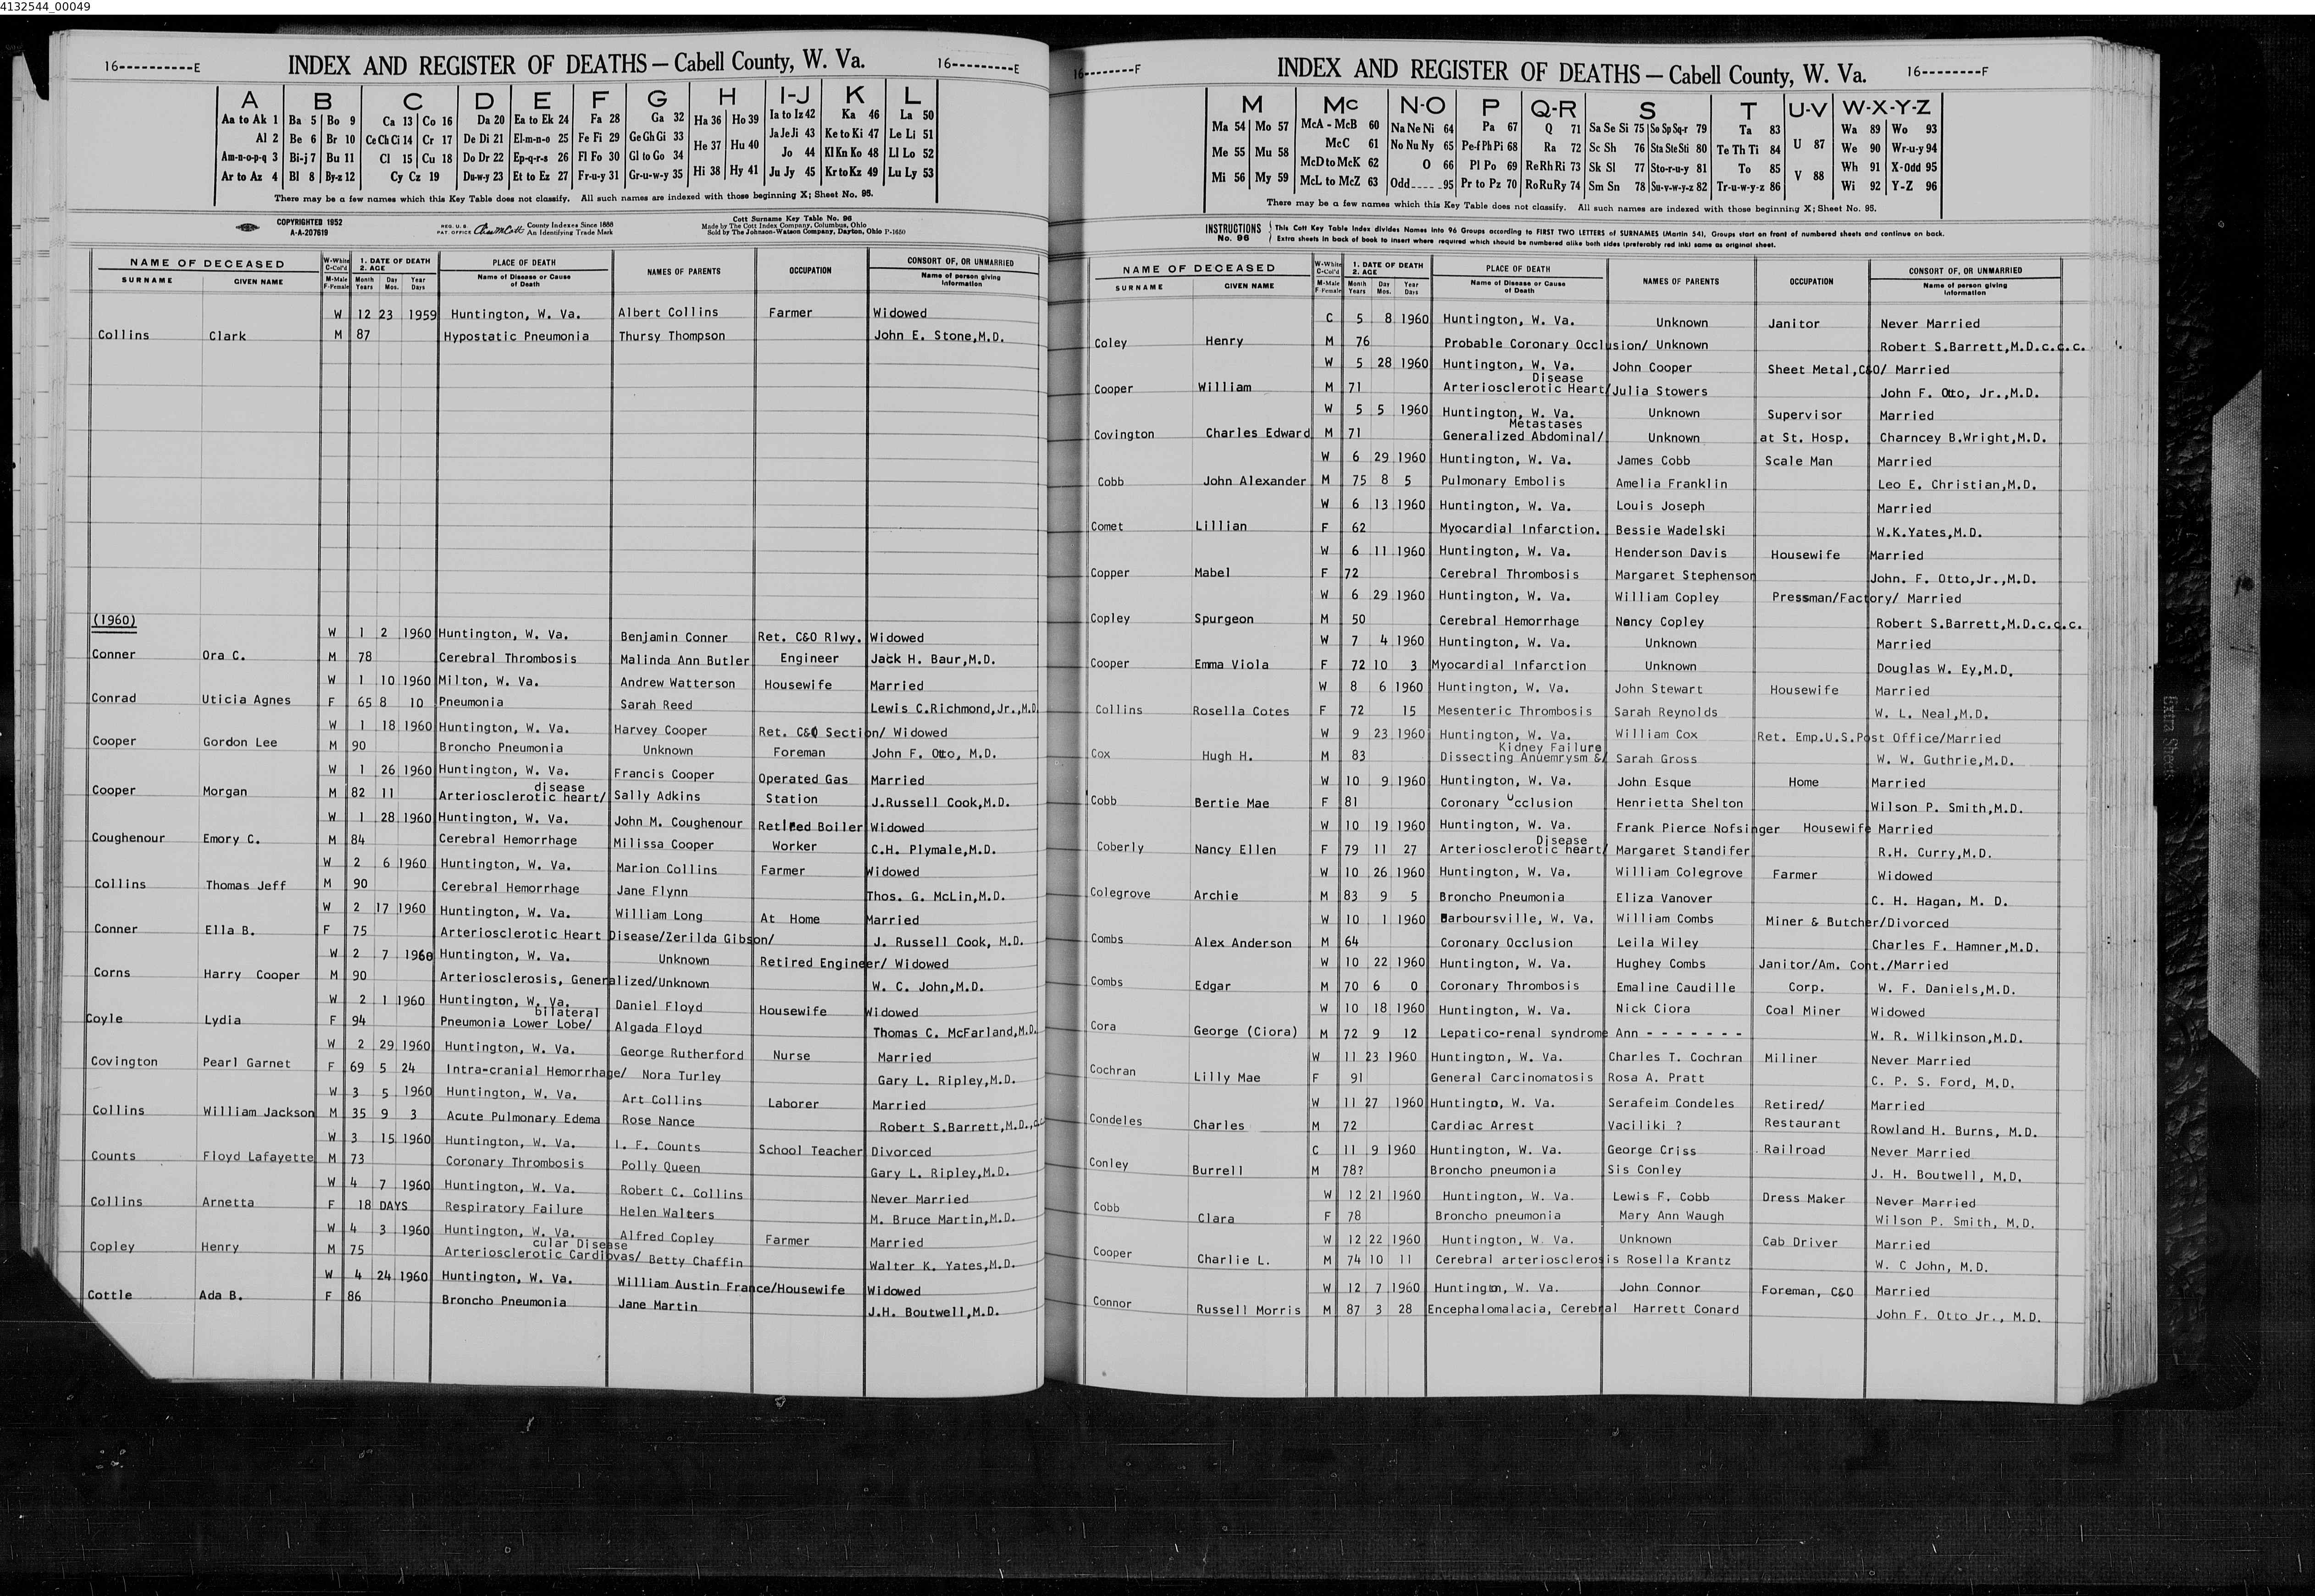 4132544_00049
16----------E INDEX AND REGISTER OF DEATHS — Cabell County, W. Va. 16---------E
A B C D E F G H I-J K L
Aa to Ak 1 Ba 5 Bo 9 Ca 13 Co 16 Da 20 Ea to Ek 24 Fa 28 Ga 32 Ha 36 Ho 39 Ia to Iz 42 Ka 46 La 50
Al 2 Be 6 Br 10 Ce Ch Ci 14 Cr 17 De Di 21 El-m-n-o 25 Fe Fi 29 Ge Gh Gi 33 He 37 Hu 40 Ja Je Ji 43 Ke to Ki 47 Le Li 51
Am-n-o-p-q 3 Bi-j 7 Bu 11 Cl 15 Cu 18 Do Dr 22 Ep-q-r-s 26 Fl Fo 30 Gl to Go 34 Jo 44 Kl Kn Ko 48 Ll Lo 52
Ar to Az 4 Bl 8 By-z 12 Cy Cz 19 Du-w-y 23 Et to Ez 27 Fr-u-y 31 Gr-u-w-y 35 Hi 38 Hy 41 Ju Jy 45 Kr to Kz 49 Lu Ly 53
There may be a few names which this Key Table does not classify. All such names are indexed with those beginning X; Sheet No. 95.
COPYRIGHTED 1952
A-A-207619
REG. U.S. PAT. OFFICE County Indexes Since 1888 An Identifying Trade Mark
Cott Surname Key Table No. 96
Made by The Cott Index Company, Columbus, Ohio
Sold by The Johnson-Watson Company, Dayton, Ohio P-1650
NAME OF DECEASED W-White C-Col'd 1. DATE OF DEATH 2. AGE PLACE OF DEATH NAMES OF PARENTS OCCUPATION CONSORT OF, OR UNMARRIED
SURNAME GIVEN NAME M-Male F-Female Month Years Day Mos. Year Days Name of Disease or Cause of Death Name of person giving information
W 12 23 1959 Huntington, W. Va. Albert Collins Farmer Widowed
Collins Clark M 87 Hypostatic Pneumonia Thursy Thompson John E. Stone,M.D.
(1960)
W 1 2 1960 Huntington, W. Va. Benjamin Conner Ret. C&O Rlwy. Widowed
Conner Ora C. M 78 Cerebral Thrombosis Malinda Ann Butler Engineer Jack H. Baur,M.D.
W 1 10 1960 Milton, W. Va. Andrew Watterson Housewife Married
Conrad Uticia Agnes F 65 8 10 Pneumonia Sarah Reed Lewis C.Richmond,Jr.,M.D
W 1 18 1960 Huntington, W. Va. Harvey Cooper Ret. C&O Section/ Widowed
Cooper Gordon Lee M 90 Broncho Pneumonia Unknown Foreman John F. Otto, M.D.
W 1 26 1960 Huntington, W. Va. Francis Cooper Operated Gas Married
disease
Cooper Morgan M 82 11 Arteriosclerotic heart/ Sally Adkins Station J.Russell Cook,M.D.
W 1 28 1960 Huntington, W. Va. John M. Coughenour Retired Boiler Widowed
Coughenour Emory C. M 84 Cerebral Hemorrhage Milissa Cooper Worker C.H. Plymale,M.D.
W 2 6 1960 Huntington, W. Va. Marion Collins Farmer Widowed
Collins Thomas Jeff M 90 Cerebral Hemorrhage Jane Flynn Thos. G. McLin,M.D.
W 2 17 1960 Huntington, W. Va. William Long At Home Married
Conner Ella B. F 75 Arteriosclerotic Heart Disease/Zerilda Gibson/ J. Russell Cook, M.D.
W 2 7 1960 Huntington, W. Va. Unknown Retired Engineer/ Widowed
Corns Harry Cooper M 90 Arteriosclerosis, Generalized/Unknown W. C. John,M.D.
W 2 1 1960 Huntington, W. Va. Daniel Floyd Housewife Widowed
bilateral
Coyle Lydia F 94 Pneumonia Lower Lobe/ Algada Floyd Thomas C. McFarland,M.D.
W 2 29 1960 Huntington, W. Va. George Rutherford Nurse Married
Covington Pearl Garnet F 69 5 24 Intra-cranial Hemorrhage/ Nora Turley Gary L. Ripley,M.D.
W 3 5 1960 Huntington, W. Va. Art Collins Laborer Married
Collins William Jackson M 35 9 3 Acute Pulmonary Edema Rose Nance Robert S.Barrett,M.D.,
W 3 15 1960 Huntington, W. Va. I. F. Counts School Teacher Divorced
Counts Floyd Lafayette M 73 Coronary Thrombosis Polly Queen Gary L. Ripley,M.D.
W 4 7 1960 Huntington, W. Va. Robert C. Collins Never Married
Collins Arnetta F 18 DAYS Respiratory Failure Helen Walters M. Bruce Martin,M.D.
W 4 3 1960 Huntington, W. Va. Alfred Copley Farmer Married
cular Disease
Copley Henry M 75 Arteriosclerotic Cardiovas/ Betty Chaffin Walter K. Yates,M.D.
W 4 24 1960 Huntington, W. Va. William Austin France/Housewife Widowed
Cottle Ada B. F 86 Broncho Pneumonia Jane Martin J.H. Boutwell,M.D.
16--------F INDEX AND REGISTER OF DEATHS — Cabell County, W. Va. 16--------F
M Mc N-O P Q-R S T U-V W-X-Y-Z
Ma 54 Mo 57 McA - McB 60 Na Ne Ni 64 Pa 67 Q 71 Sa Se Si 75 So Sp Sq-r 79 Ta 83 U 87 Wa 89 Wo 93
Me 55 Mu 58 McC 61 No Nu Ny 65 Pe-f Ph Pi 68 Ra 72 Sc Sh 76 Sta Ste Sti 80 Te Th Ti 84 We 90 Wr-u-y 94
McD to McK 62 O 66 Pl Po 69 Re Rh Ri 73 Sk Sl 77 Sto-r-u-y 81 To 85 V 88 Wh 91 X-Odd 95
Mi 56 My 59 McL to McZ 63 Odd-----95 Pr to Pz 70 Ro Ru Ry 74 Sm Sn 78 Su-v-w-y-z 82 Tr-u-w-y-z 86 Wi 92 Y-Z 96
There may be a few names which this Key Table does not classify. All such names are indexed with those beginning X; Sheet No. 95.
INSTRUCTIONS No. 96
This Cott Key Table Index divides Names into 96 Groups according to FIRST TWO LETTERS of SURNAMES (Martin 54). Groups start on front of numbered sheets and continue on back.
Extra sheets in back of book to insert where required which should be numbered alike both sides (preferably red ink) same as original sheet.
NAME OF DECEASED W-White C-Col'd 1. DATE OF DEATH 2. AGE PLACE OF DEATH NAMES OF PARENTS OCCUPATION CONSORT OF, OR UNMARRIED
SURNAME GIVEN NAME M-Male F-Female Month Years Day Mos. Year Days Name of Disease or Cause of Death Name of person giving information
C 5 8 1960 Huntington, W. Va. Unknown Janitor Never Married
Coley Henry M 76 Probable Coronary Occlusion/ Unknown Robert S.Barrett,M.D.c.c.c.
W 5 28 1960 Huntington, W. Va. John Cooper Sheet Metal,C&O/ Married
Disease
Cooper William M 71 Arteriosclerotic Heart/ Julia Stowers John F. Otto, Jr.,M.D.
W 5 5 1960 Huntington, W. Va. Unknown Supervisor Married
Metastases
Covington Charles Edward M 71 Generalized Abdominal/ Unknown at St. Hosp. Charncey B.Wright,M.D.
W 6 29 1960 Huntington, W. Va. James Cobb Scale Man Married
Cobb John Alexander M 75 8 5 Pulmonary Embolis Amelia Franklin Leo E. Christian,M.D.
W 6 13 1960 Huntington, W. Va. Louis Joseph Married
Comet Lillian F 62 Myocardial Infarction. Bessie Wadelski W.K.Yates,M.D.
W 6 11 1960 Huntington, W. Va. Henderson Davis Housewife Married
Copper Mabel F 72 Cerebral Thrombosis Margaret Stephenson John. F. Otto,Jr.,M.D.
W 6 29 1960 Huntington, W. Va. William Copley Pressman/Factory/ Married
Copley Spurgeon M 50 Cerebral Hemorrhage Nancy Copley Robert S.Barrett,M.D.c.c.c.
W 7 4 1960 Huntington, W. Va. Unknown Married
Cooper Emma Viola F 72 10 3 Myocardial Infarction Unknown Douglas W. Ey,M.D.
W 8 6 1960 Huntington, W. Va. John Stewart Housewife Married
Collins Rosella Cotes F 72 15 Mesenteric Thrombosis Sarah Reynolds W. L. Neal,M.D.
W 9 23 1960 Huntington, W. Va. William Cox Ret. Emp.U.S.Post Office/Married
Kidney Failure
Cox Hugh H. M 83 Dissecting Anuemrysm &/ Sarah Gross W. W. Guthrie,M.D.
W 10 9 1960 Huntington, W. Va. John Esque Home Married
Cobb Bertie Mae F 81 Coronary Occlusion Henrietta Shelton Wilson P. Smith,M.D.
W 10 19 1960 Huntington, W. Va. Frank Pierce Nofsinger Housewife Married
Disease
Coberly Nancy Ellen F 79 11 27 Arteriosclerotic heart/ Margaret Standifer R.H. Curry,M.D.
W 10 26 1960 Huntington, W. Va. William Colegrove Farmer Widowed
Colegrove Archie M 83 9 5 Broncho Pneumonia Eliza Vanover C. H. Hagan, M. D.
W 10 1 1960 Barboursville, W. Va. William Combs Miner & Butcher/Divorced
Combs Alex Anderson M 64 Coronary Occlusion Leila Wiley Charles F. Hamner,M.D.
W 10 22 1960 Huntington, W. Va. Hughey Combs Janitor/Am. Cont./Married
Combs Edgar M 70 6 0 Coronary Thrombosis Emaline Caudille Corp. W. F. Daniels,M.D.
W 10 18 1960 Huntington, W. Va. Nick Ciora Coal Miner Widowed
Cora George (Ciora) M 72 9 12 Lepatico-renal syndrome Ann - - - - - - - W. R. Wilkinson,M.D.
W 11 23 1960 Huntington, W. Va. Charles T. Cochran Miliner Never Married
Cochran Lilly Mae F 91 General Carcinomatosis Rosa A. Pratt C. P. S. Ford, M.D.
W 11 27 1960 Huntingto, W. Va. Serafeim Condeles Retired/ Married
Condeles Charles M 72 Cardiac Arrest Vaciliki ? Restaurant Rowland H. Burns, M.D.
C 11 9 1960 Huntington, W. Va. George Criss Railroad Never Married
Conley Burrell M 78? Broncho pneumonia Sis Conley J. H. Boutwell, M.D.
W 12 21 1960 Huntington, W. Va. Lewis F. Cobb Dress Maker Never Married
Cobb Clara F 78 Broncho pneumonia Mary Ann Waugh Wilson P. Smith, M.D.
W 12 22 1960 Huntington, W. Va. Unknown Cab Driver Married
Cooper Charlie L. M 74 10 11 Cerebral arteriosclerosis Rosella Krantz W. C John, M.D.
W 12 7 1960 Huntington, W. Va. John Connor Foreman, C&O Married
Connor Russell Morris M 87 3 28 Encephalomalacia, Cerebral Harrett Conard John F. Otto Jr., M.D.
Extra Sheets